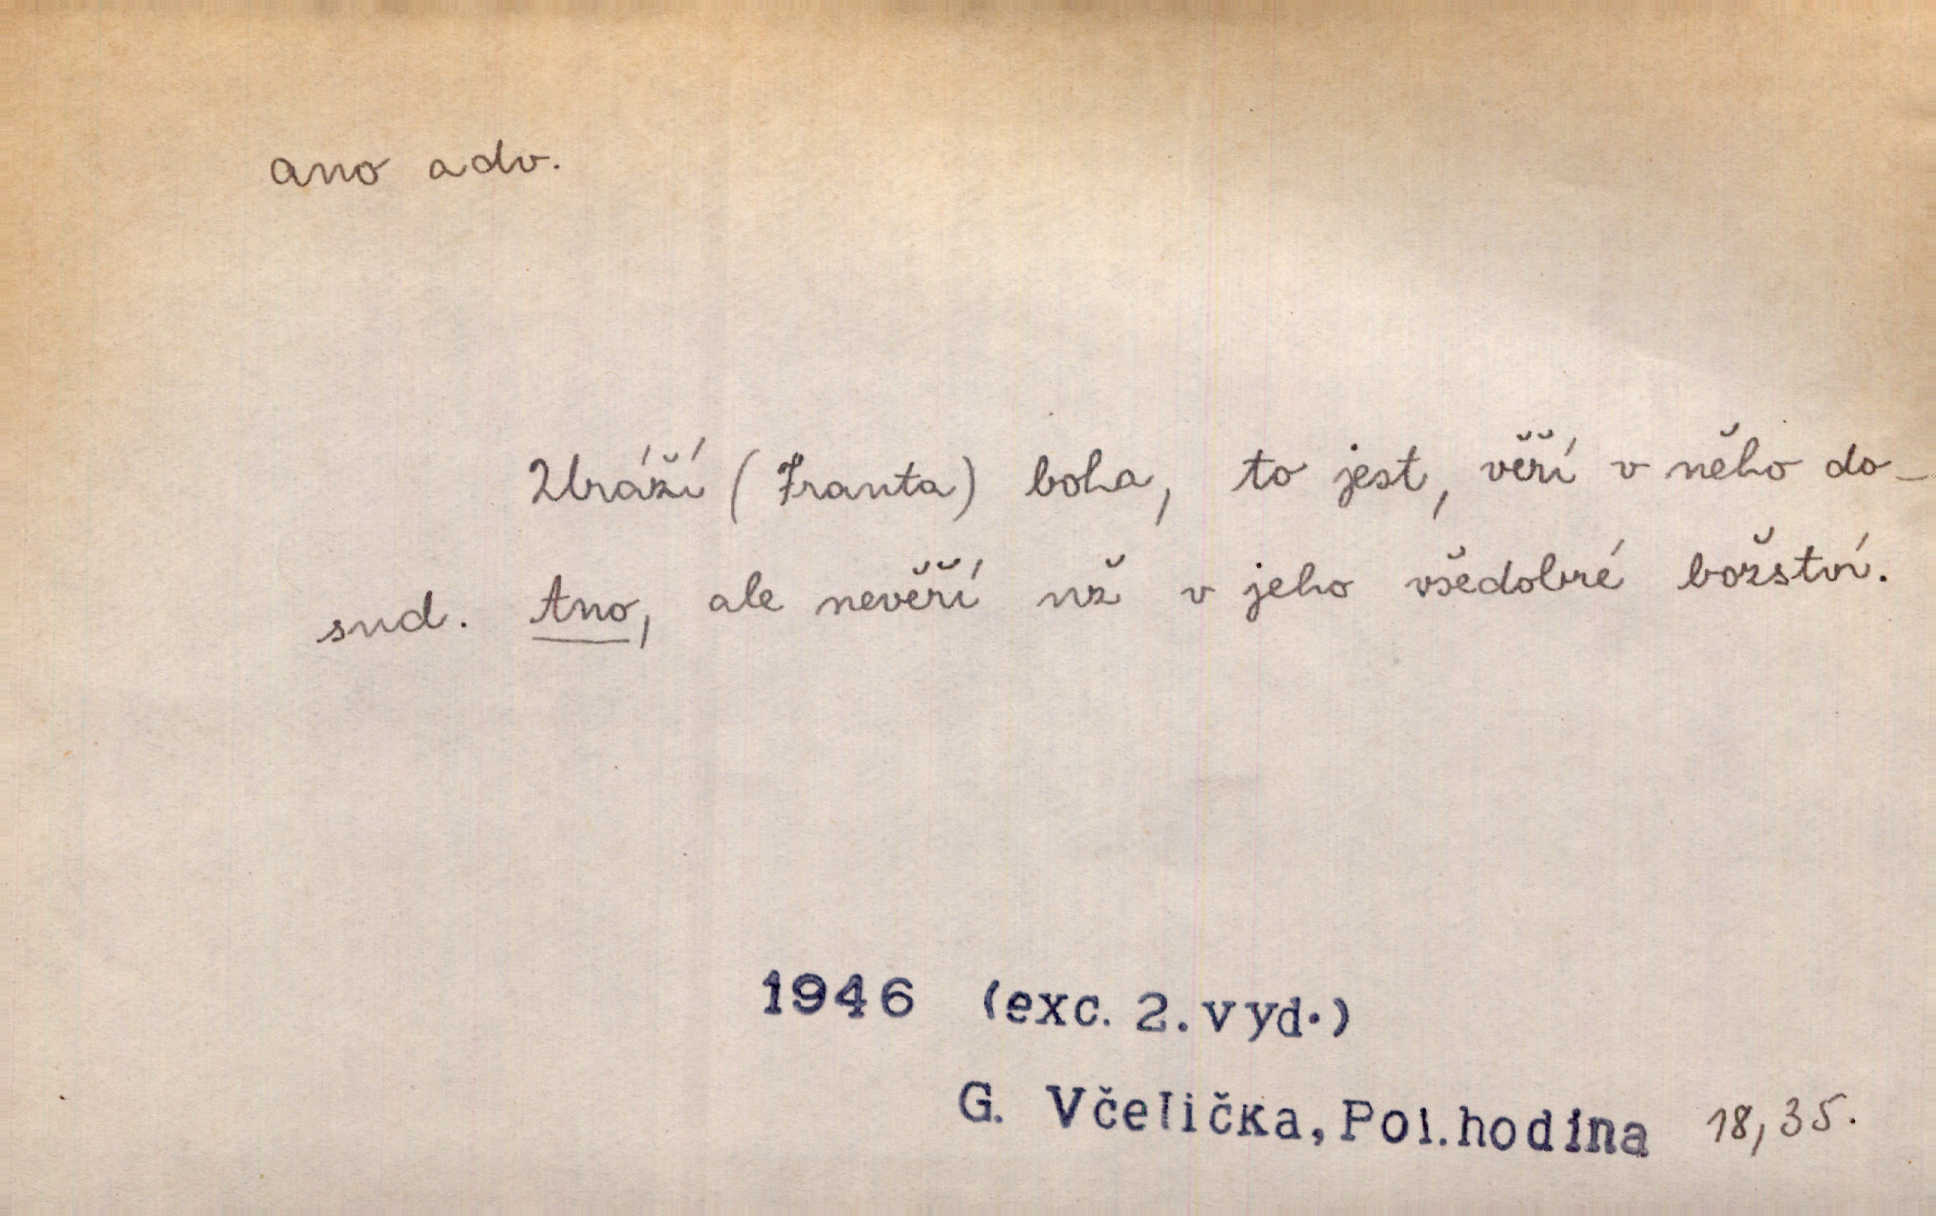 ano adv.
Uráží (Franta) boha, to jest, věří v něho do-
sud. Ano, ale nevěří už v jeho všedobré božství.
1946 (exc. 2. vyd.)
G. Včelička, Pol. hodina 18, 35.